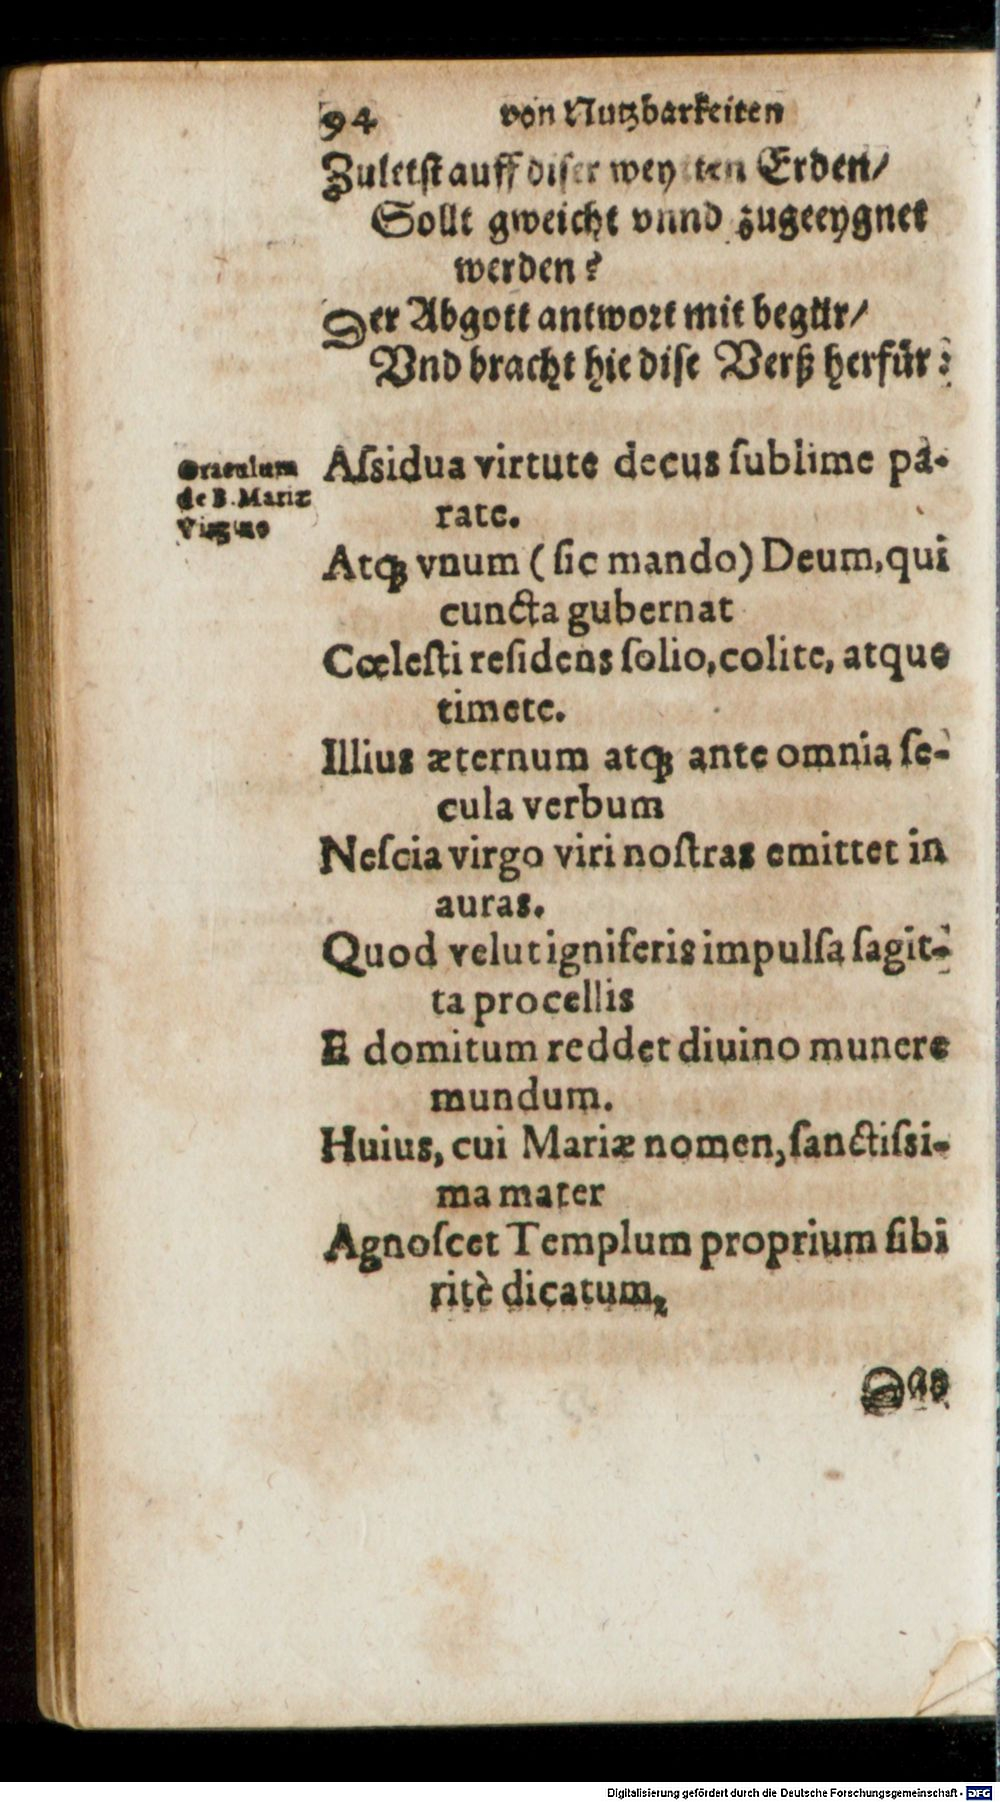 94 von Nutzbarkeiten
Zuletst auff diser weytten Erden/
Sollt gweicht vnnd zugeeygnet
werden?
Der Abgott antwort mit begür/
Vnd bracht hie dise Verß herfür:
Oraculum
de B. Mariæ
Virgine
Aſsidua virtute decus ſublime pa-
rate.
Atq; vnum (ſic mando) Deum, qui
cuncta gubernat
Cœleſti reſidens ſolio, colite, atque
timete.
Illius æternum atq; ante omnia ſe-
cula verbum
Neſcia virgo viri noſtras emittet in
auras.
Quod velut igniferis impulſa ſagit-
ta procellis
E domitum reddet diuino munere
mundum.
Huius, cui Mariæ nomen, ſanctiſsi-
ma mater
Agnoſcet Templum proprium ſibi
ritè dicatum,
Digitalisierung gefördert durch die Deutsche Forschungsgemeinschaft - DFG